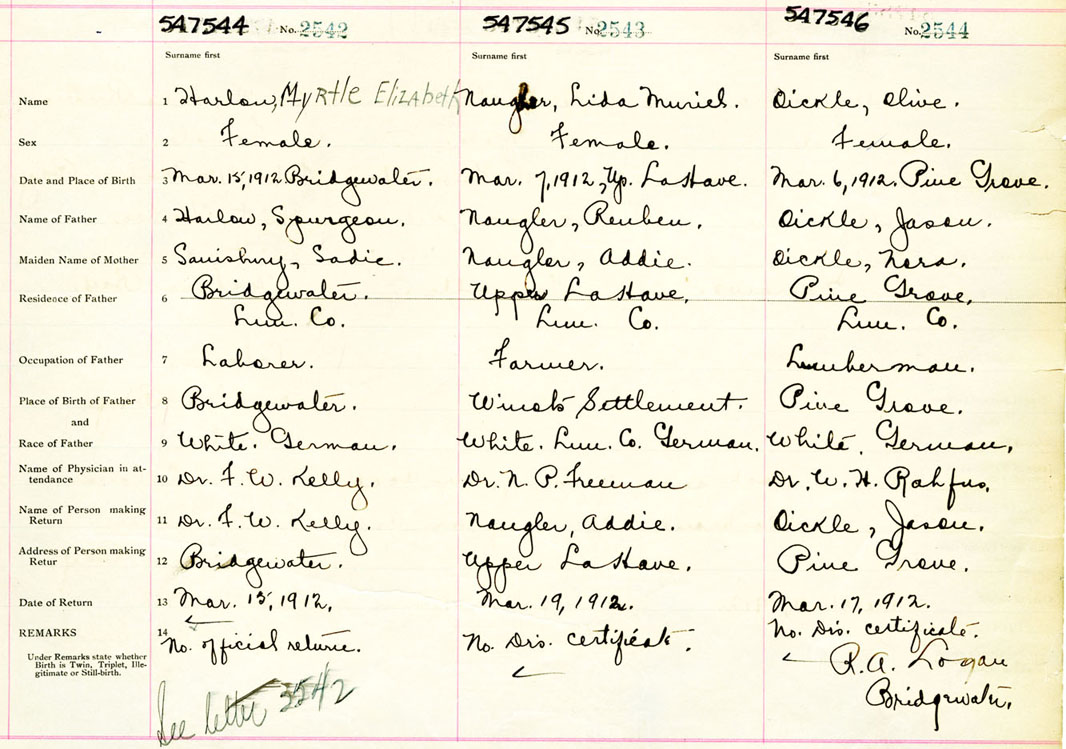 547544 No. 2542 547545 No. 2543 547546 No. 2544
Surname first Surname first Surname first
Name 1 Harlow, Myrtle Elizabeth Naugler, Lida Muriel. Oickle, Olive.
Sex 2 Female. Female. Female.
Date and Place of Birth 3 Mar. 15, 1912 Bridgewater. Mar. 7, 1912, Up. LaHave. Mar. 6, 1912. Pine Grove.
Name of Father 4 Harlow, Spurgeon. Naugler, Reuben. Oickle, Jason.
Maiden Name of Mother 5 Sadie. Naugler, Addie. Oickle, Nora.
Residence of Father 6 Bridgewater. Upper LaHave. Pine Grove.
Lun. Co. Lun. Co. Lun. Co.
Occupation of Father 7 Laborer. Farmer. Lumberman.
Place of Birth of Father 8 Bridgewater. Settlement. Pine Grove.
and
Race of Father 9 White. German. White. Lun. Co. German. White. German.
Name of Physician in at-
tendance 10 Dr. F. W. Kelly. Dr. N. P. Freeman Dr. W. H. Rahfus.
Name of Person making
Return 11 Dr. F. W. Kelly. Naugler, Addie. Oickle, Jason.
Address of Person making
Retur 12 Bridgewater. Upper LaHave. Pine Grove.
Date of Return 13 Mar. 15, 1912. Mar. 19, 1912. Mar. 17, 1912.
REMARKS 14 No. official return. No. Drs. certificate. No. Drs. certificate.
Under Remarks state whether
Birth is Twin, Triplet, Ille-
gitimate or Still-birth.
R. A. Logan
Bridgewater.
See letter 2542